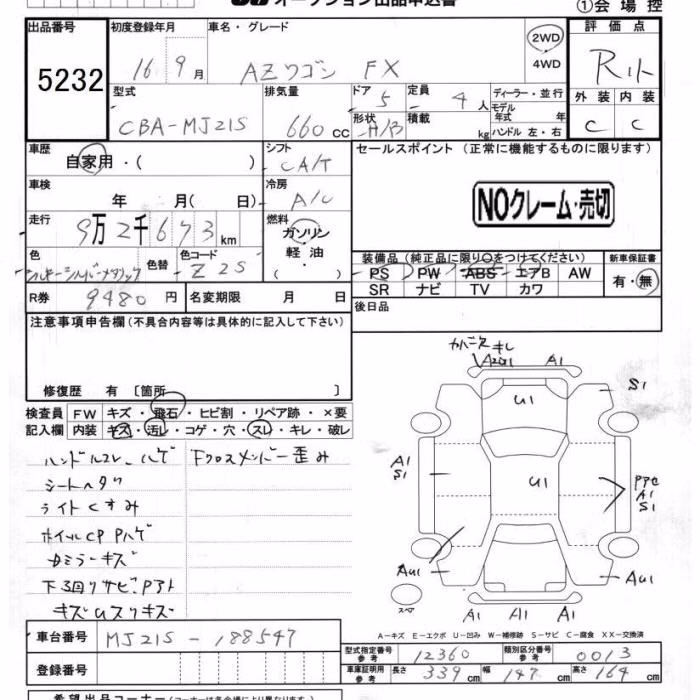 オークション出品申込書
①会場控
出品番号 初度登録年月 車名・グレード 評価点
5232 16 9月 AZワゴン FX 2WD 4WD R
型式 排気量 ドア 定員 ディーラー・並行 外装 内装
CBA-MJ21S 660cc 5 4人 モデル年式 年 C C
形状 H/B 積載 kg ハンドル 左・右
車歴 シフト セールスポイント (正常に機能するものに限ります)
自家用・( ) CA/T
車検 冷房
年 月( 日) A/C
NOクレーム・売切
走行 燃料
9万2千673km ガソリン
軽油
( )
色 色替 色コード
シルキーシルバーメタリック Z2S
装備品(純正品に限り○をつけてください) 新車保証書
PS PW ABS エアB AW 有・無
SR ナビ TV カワ
R券 9480円 名変期限 月 日 後日品
注意事項申告欄(不具合内容等は具体的に記入して下さい)
修復歴 有 [箇所 ]
検査員 FW キズ・飛石・ヒビ割・リペア跡・×要
記入欄 内装 キズ・汚レ・コゲ・穴・スレ・キレ・破レ
ハンドルスレ、ハゲ Fクロスメンバー歪み
シートヘタリ
ライトくすみ
ホイルCP Pハゲ
カミラーキズ
下回りサビ、Pアト
キズUスリキズ
キレ
A1
U1
S1
A1
S1
U1
A1
S1
AU1
AU1
スペア
A1 A1 A1
A-キズ E-エクボ U-凹み W-補修跡 S-サビ C-腐食 XX-交換済
車台番号 MJ21S-188547
登録番号
型式指定番号 参考 12360 類別区分番号 参考 0013
車庫証明用 参考 長さ 339cm 幅 147cm 高さ 164cm
希望出品コーナー